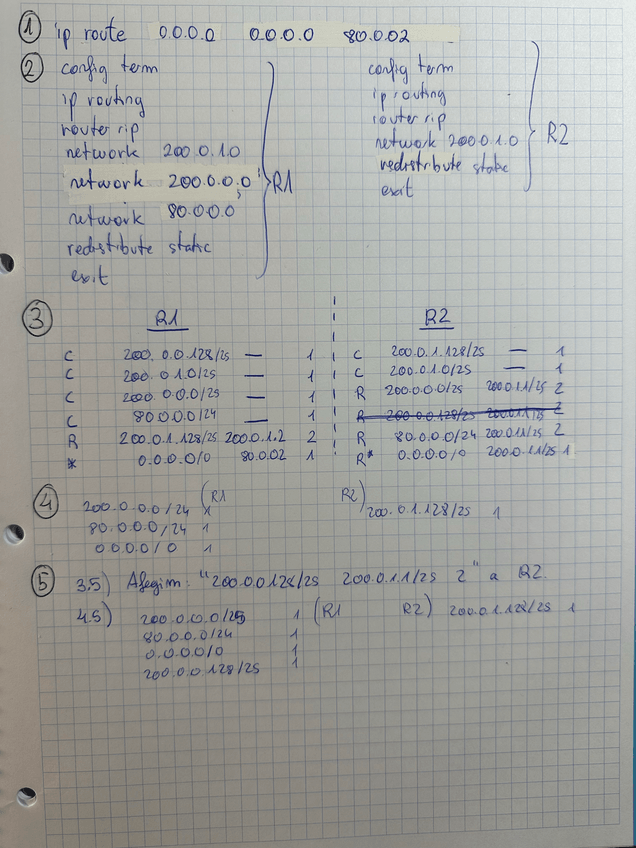 1 ip route 0.0.0.0 0.0.0.0 80.0.02
2 config term
ip routing
router rip
network 200.0.1.0
network 200.0.0.0
network 80.0.0.0
redistibute static
exit
R1
config term
ip routing
router rip
network 200.0.1.0
redistribute static
exit
R2
3 R1
C 200.0.0.128/25 — 1
C 200.0.1.0/25 — 1
C 200.0.0.0/25 — 1
C 80.0.0.0/24 — 1
R 200.0.1.128/25 200.0.1.2 2
* 0.0.0.0/0 80.0.02 1
R2
C 200.0.1.128/25 — 1
C 200.0.1.0/25 — 1
R 200.0.0.0/25 200.0.1.1/25 2
R 200.0.0.128/25 200.0.1.1/25 2
R 80.0.0.0/24 200.0.1.1/25 2
R* 0.0.0.0/0 200.0.1.1/25 1
4 (R1 R2)
200.0.0.0/24 1 200.0.1.128/25 1
80.0.0.0/24 1
0.0.0.0/0 1
5 3.5) Afegim: "200.0.0.128/25 200.0.1.1/25 2" a R2.
4.5) 200.0.0.0/25 1 (R1 R2) 200.0.1.128/25 1
80.0.0.0/24 1
0.0.0.0/0 1
200.0.0.128/25 1